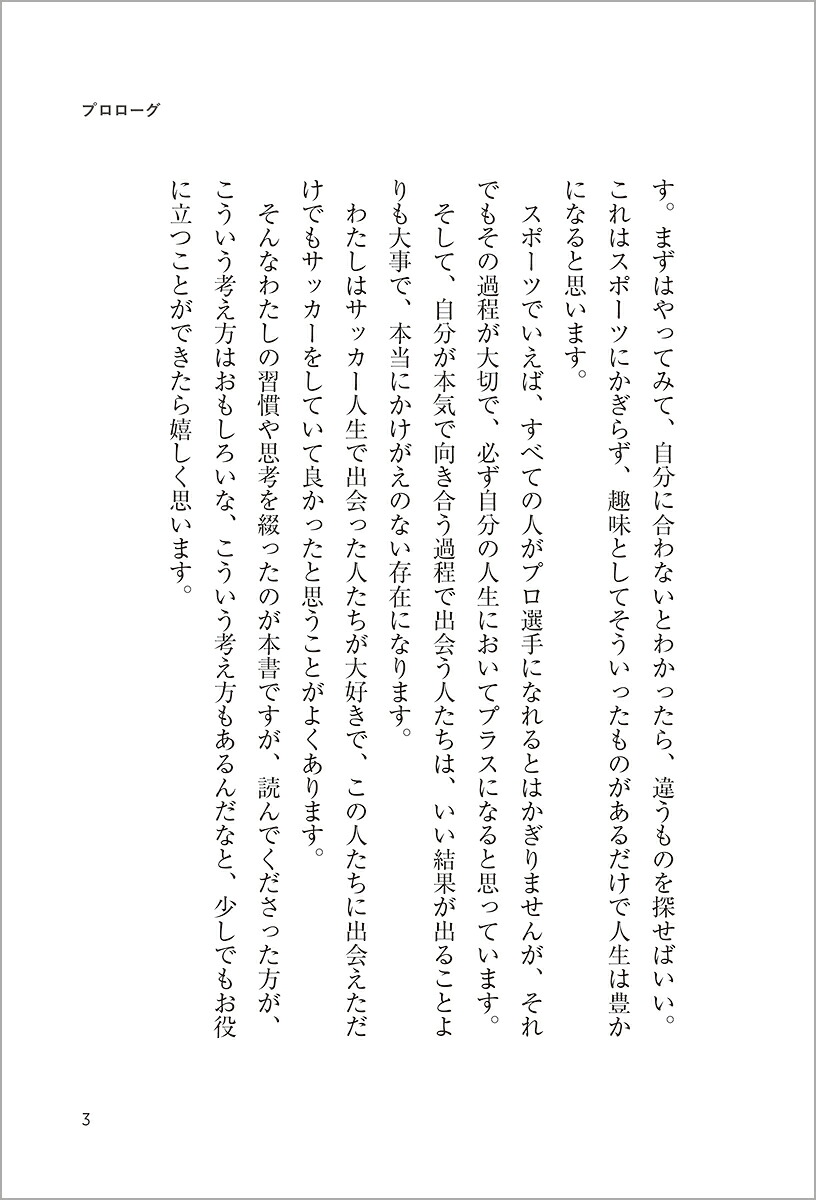 プロローグ
す。まずはやってみて、自分に合わないとわかったら、違うものを探せばいい。
これはスポーツにかぎらず、趣味としてそういったものがあるだけで人生は豊か
になると思います。
スポーツでいえば、すべての人がプロ選手になれるとはかぎりませんが、それ
でもその過程が大切で、必ず自分の人生においてプラスになると思っています。
そして、自分が本気で向き合う過程で出会う人たちは、いい結果が出ることよ
りも大事で、本当にかけがえのない存在になります。
わたしはサッカー人生で出会った人たちが大好きで、この人たちに出会えただ
けでもサッカーをしていて良かったと思うことがよくあります。
そんなわたしの習慣や思考を綴ったのが本書ですが、読んでくださった方が、
こういう考え方はおもしろいな、こういう考え方もあるんだなと、少しでもお役
に立つことができたら嬉しく思います。
3